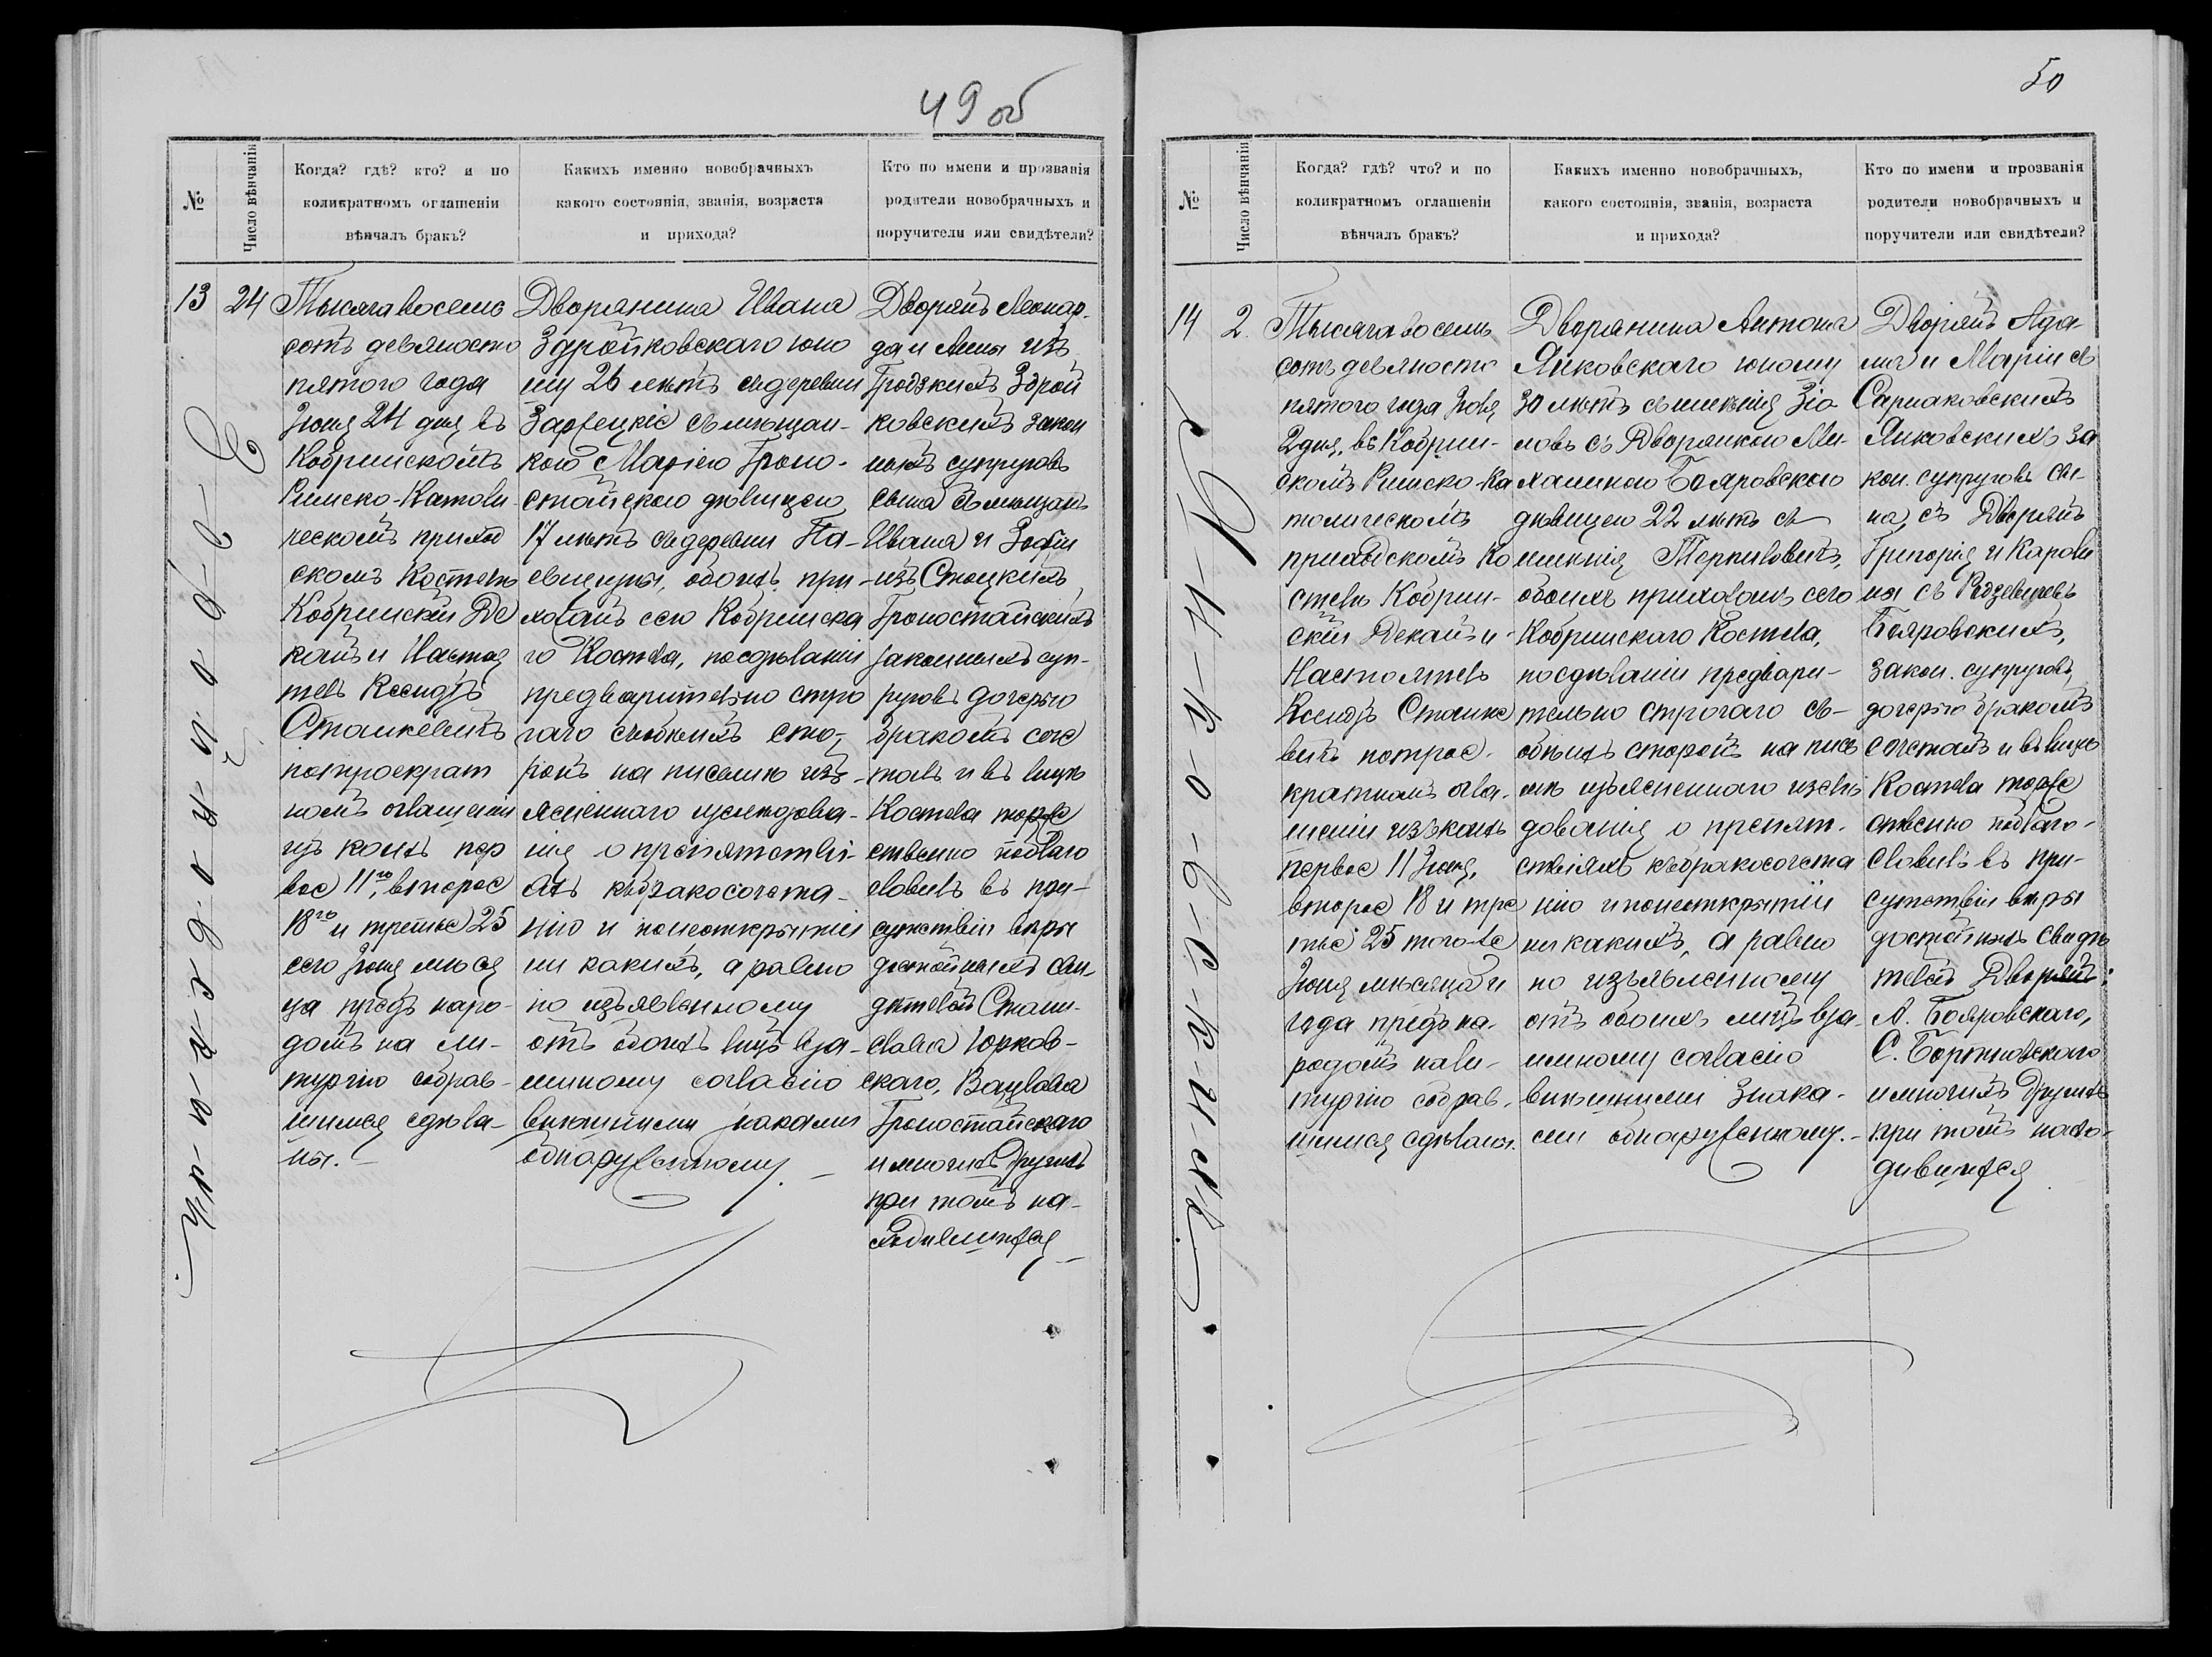 49 об
№
Число вѣнчанія
Когда? гдѣ? кто? и по
коликратномъ оглашеніи
вѣнчалъ бракъ?
Какихъ именно новобрачныхъ
какого состоянія, званія, возраста
и прихода?
Кто по имени и прозванія
родители новобрачныхъ и
поручители или свидѣтели?
13
24
Тысяча восемь
сотъ девяносто
пятого года
Іюня 24 дня въ
Кобринскомъ
Римско-Католи
ческомъ приход
скомъ Костелѣ
Кобринскій Де
канъ и Настоя
тель Ксендзъ
Станкевичъ
по троекрат
номъ оглашеніи
изъ коихъ пер
вое 11го, второе
18го и третье 25
сего Іюня мѣся
ца предъ наро-
домъ на ли-
тургію собрав-
шимся сдѣла-
ны.
Дворянина Ивана
Здройковскаго юно
шу 26 лѣтъ съ деревни
Заржецкіе съ мѣщан-
кою Маріею Гроно-
стайскою дѣвицею
17 лѣтъ съ деревни
обоихъ при-
хожанъ сего Кобринска
го Костела, по сдѣланіи
предварительно стро
гаго съ обѣихъ сто-
ронъ на письмѣ изъ-
ясненнаго изслѣдова-
нія о препятстві-
яхъ къ бракосочета-
нію и по неоткрытіи
ни какихъ, а равно
по изъявленному
отъ обоихъ лицъ вза-
имному согласію
внѣшними знаками
обнаруженному. –
Дворянъ Леонар-
да и Анны изъ
Гродзкихъ Здрой
ковскихъ закон
ныхъ супруговъ
сына съ мѣщанъ
Ивана и Зофіи
изъ Стоцкихъ
Гроностайскихъ
законныхъ суп-
руговъ дочерью
бракомъ соче
талъ и въ лицѣ
Костела торже
ственно поблаго
словилъ въ при-
сутствіи вѣры
достойныхъ сви-
дѣтелей Стани-
слава Юрков-
скаго, Вацлава
Гроностайскаго
и многихъ другихъ
при томъ на-
ходившихся
50
№
Число вѣнчанія
Когда? гдѣ? что? и по
коликратномъ оглашеніи
вѣнчалъ бракъ?
Какихъ именно новобрачныхъ,
какого состоянія, званія, возраста
и прихода?
Кто по имени и прозванія
родители новобрачныхъ и
поручители или свидѣтели?
14
2.
Тысяча восемь
сотъ девяносто
пятого года Іюля
2 дня, въ Кобрин-
скомъ Римско-Ка
толическомъ
приходскомъ Ко
стелѣ Кобрин-
скій Деканъ и
Настоятель
Ксендзъ Станке
вичъ по трое-
кратномъ огла-
шеніи изъ коихъ
первое 11 Іюня,
второе 18 и тре
тье 25 того-же
Іюня мѣсяца и
года предъ на-
родомъ на ли-
тургію собрав-
шимся сдѣланы.
Дворянина Антона
Янковскаго юношу
30 лѣтъ съ имѣнія Зіо
ловъ съ Дворянкою Ме-
ланіею Бояровскою
дѣвицею 22 лѣтъ съ
имѣнія Теркиловичъ,
обоихъ прихожанъ сего
Кобринскаго Костела,
по сдѣланіи предвари-
тельно строгаго съ
обѣихъ сторонъ на пись
мѣ изъясненнаго изслѣ
дованія о препят-
ствіяхъ къ бракосочета
нію и по неоткрытіи
ни какихъ, а равно
по изъявленному
отъ обоихъ лицъ вза-
имному согласію
внѣшними знака-
ми обнаруженному. –
Дворянъ Ада-
ма и Маріи съ
Сариаковскихъ
Янковскихъ за
кон. супруговъ сы-
на, съ Дворянъ
Григорія и Кароли
на съ Родзевичовъ
Бояровскихъ,
закон. супруговъ
дочерью бракомъ
сочеталъ и въ лицѣ
Костела торже
ственно поблаго-
словилъ въ при-
сутствіи вѣры
достойныхъ свидѣ
телей Дворянъ:
А. Бояровскаго,
С. Бортновскаго
и многихъ другихъ
при томъ нахо-
дившихся